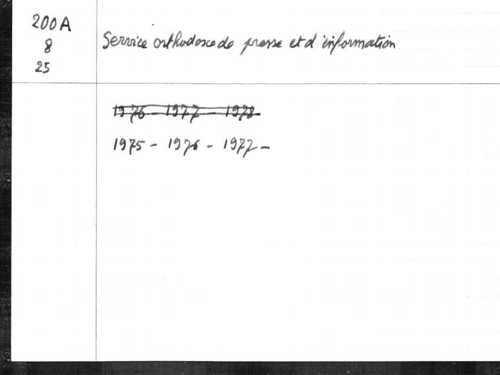 200A
8
25
Service orthodoxe de presse et d'information
1976 - 1977 - 1978
1975 - 1976 - 1977 -